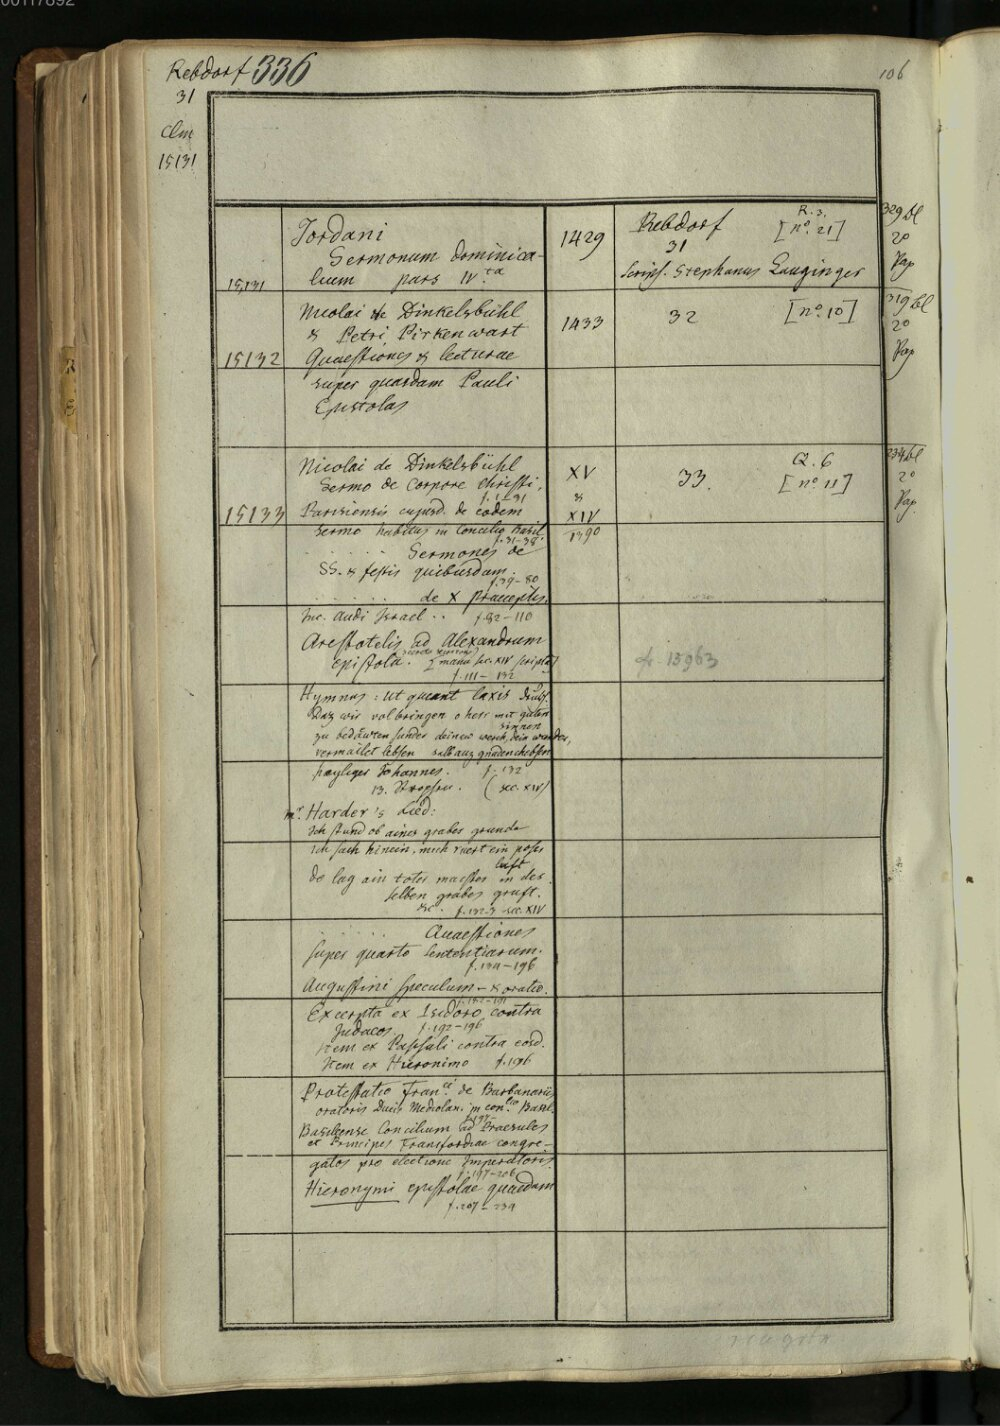 00117892
Rebdorf 336
106
31
Clm
15131
15131
Jordani
Sermonum dominica-
lium pars IV.ta
1429
Rebdorf
31
R. 3.
[nº. 21]
Script. Stephanus Lauginger
329 bl
2º
Pap
15132
Nicolai de Dinkelsbühl
& Petri Pirkenwart
Quaestiones & lecturae
super quasdam Pauli
Epistolas
1433
32
[nº. 10]
319 bl
2º
Pap
15133
Nicolai de Dinkelsbühl
Sermo de corpore Christi.
f. 1-31
Parisiensis cujusd. de eodem
sermo habitus in Concilio Basil.
f. 31-38
Sermones de
SS. & festis quibusdam.
f. 39-80
de X praeceptis.
Inc. Audi Israel . . f. 82-110
Arestotelis ad Alexandrum
epistola. [manu sec. XIV scripta]
f. 111-132
XV
&
XIV
1390
33.
Q. 6
[nº. 11]
234 bl
2º
Pap.
cf. 15963
Hymnus: Ut queant laxis
Daz wir volbringen o herr mit guten
sinnen
zu bedäwten sunder deinew werch, dein wunder,
vermailet lebsen
hayliger Johannes. f. 132
13. Strophen. (sec. XIV)
mr. Harder's Lied:
Ich stund ob aines grabes grunde
ich sach hinein, mich ruert ein poser
luft
do lag ain toter maister in des
selben grabes gruft.
&c. f. 132-3 sec. XIV
Quaestiones
super quarto Sententiarum.
f. 134-196
Augustini speculum & oratio.
f. 182-191
Excerpta ex Isidoro contra
Judaeos. f. 192-196
Item ex Paschali contra eosd.
Item ex Hieronimo f. 196
Protestatio Franci. de Barbavariis
oratoris Ducis Mediolan. in concilio Basil.
Basileense Concilium ad Praesules
et Principes Francfordiae congre-
gatos pro electione Imperatoris
f. 197-206
Hieronymi epistolae quaedam
f. 207-234